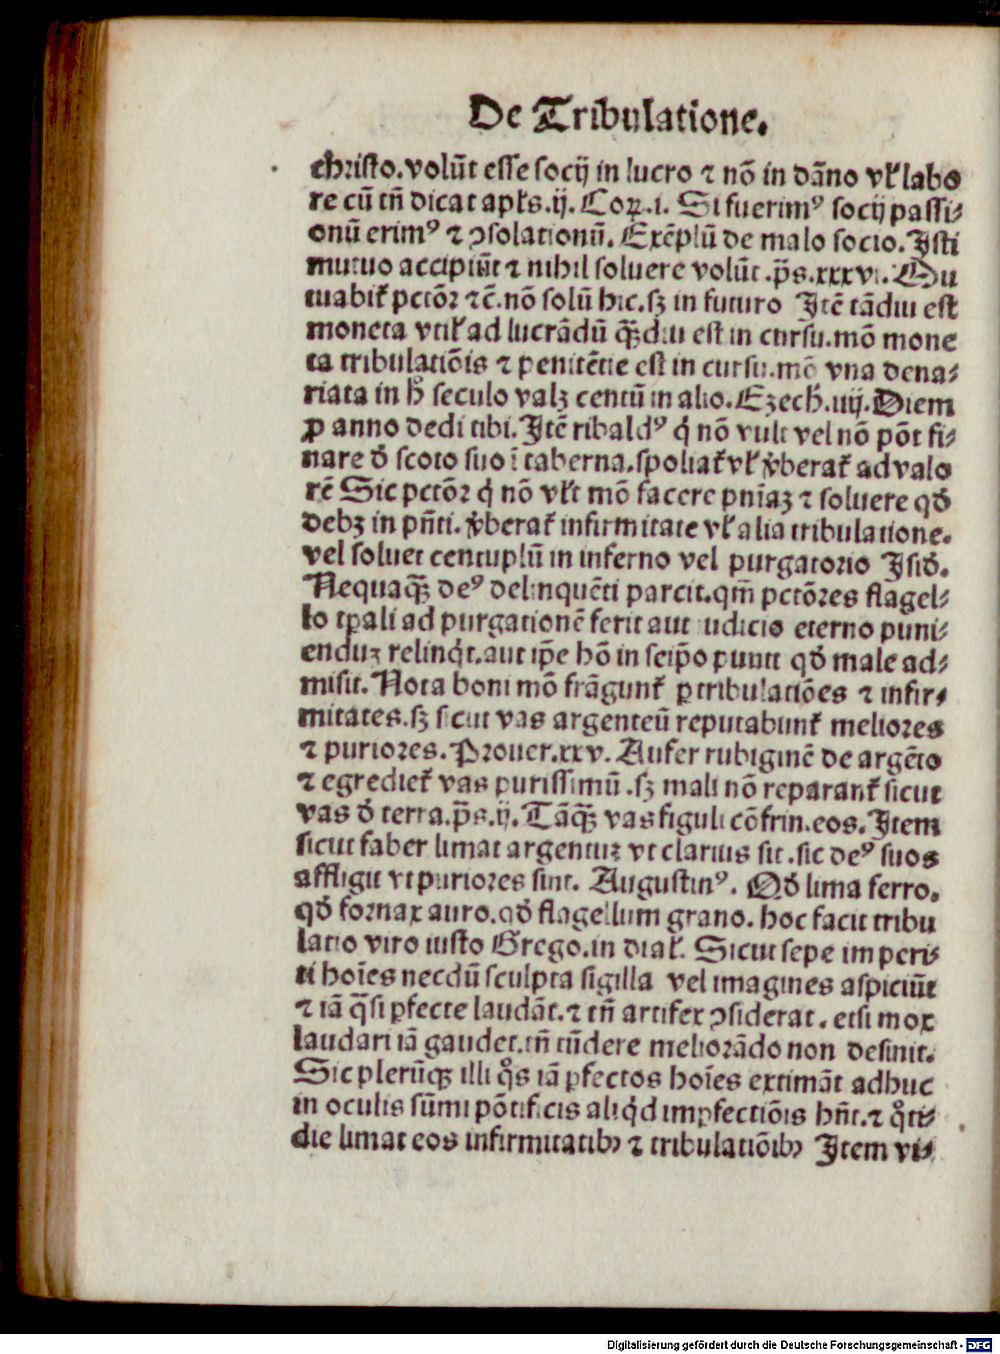 De Tribulatione.
christo. volũt esse socij in lucro ⁊ nõ in dãno vl̕ labo
re cũ tñ dicat apl̕s. ij. Coꝝ. i. Si fuerimꝰ socij passi⸗
onũ erimꝰ ⁊ ꝯsolationũ. Exẽplũ de malo socio. Isti
mutuo accipiũt ⁊ nihil soluere volũt. p̃s. xxxvi. Mu
tuabit̕ pctõꝛ ⁊c̃. nõ solũ hic. sꝫ in futuro Itẽ tãdiu est
moneta vtil̕ ad lucrãdũ q̃ꝫdiu est in cursu. mõ mone
ta tribulatiõis ⁊ penitẽtie est in cursu. mõ vna dena⸗
riata in hͦ seculo valꝫ centũ in alio. Ezech̕. iiij. Diem
ꝓ anno dedi tibi. Itẽ ribaldꝰ q̇ nõ vult vel nõ põt fi⸗
nare đ scoto suo ĩ taberna. spoliat̕ vl̕ v̓berat̕ ad valo
rẽ Sic pctõꝛ q̇ nõ vl̕t mõ facere pnĩaꝫ ⁊ soluere qđ
debꝫ in pñti. v̓berat̕ infirmitate vl̕ alia tribulatione.
vel soluet centuplũ in inferno vel purgatorio Isiđ.
Nequaq̃ꝫ deꝰ delinquẽti parcit. qm̃ pctõꝛes flagel⸗
lo tꝑali ad purgationẽ ferit aut iudicio eterno puni⸗
enduꝫ relinq̇t. aut ip̃e hõ in seip̃o punit qđ male ad⸗
misit. Nota boni mõ frãgunt̕ ꝑ tribulatiões ⁊ infir⸗
mitates. sꝫ sicut vas argenteũ reputabunt̕ meliores
⁊ puriores. Prouer. xxv. Aufer rubiginẽ de argẽto
⁊ egrediet̕ vas purissimũ. sꝫ mali nõ reparant̕ sicut
vas đ terra. p̃s. ij. Tãq̃ꝫ vas figuli cõfrin. eos. Item
sicut faber limat argentuꝫ vt clarius sit. sic deꝰ suos
affligit vt puriores sint. Augustinꝰ. Qđ lima ferro.
qđ fornax auro. qđ flagellum grano. hoc facit tribu
latio viro iusto Grego. in dial̕. Sicut sepe imperi⸗
ti hoĩes necdũ sculpta sigilla vel imagines aspiciũt
⁊ iã q̃si ꝑfecte laudãt. ⁊ tñ artifex ꝯsiderat. etsi mox
laudari iã gaudet. tñ tũdere meliorãdo non desinit.
Sic plerũqꝫ illi qͦs iã ꝑfectos hoĩes extimãt adhuc
in oculis sũmi põtificis aliq̇d imꝑfectiõis hñt. ⁊ qͦti⸗
die limat eos infirmitatibꝰ ⁊ tribulatiõibꝰ Item vi⸗
Digitalisierung gefördert durch die Deutsche Forschungsgemeinschaft - DFG